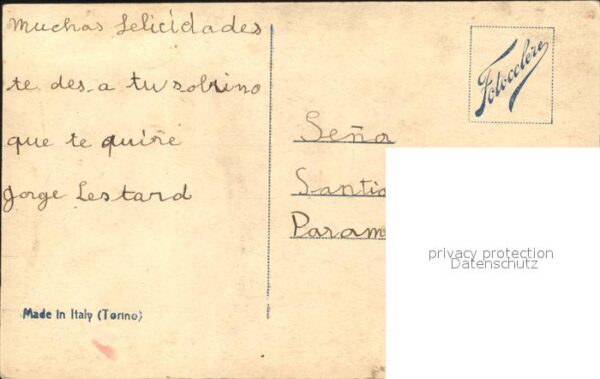 muchas felicidades
te des-a tu sobrino
que te quire
Jorge Lestard
Made in Italy (Torino)
Fotocolere
Seña
Santia
Param
privacy protection
Datenschutz